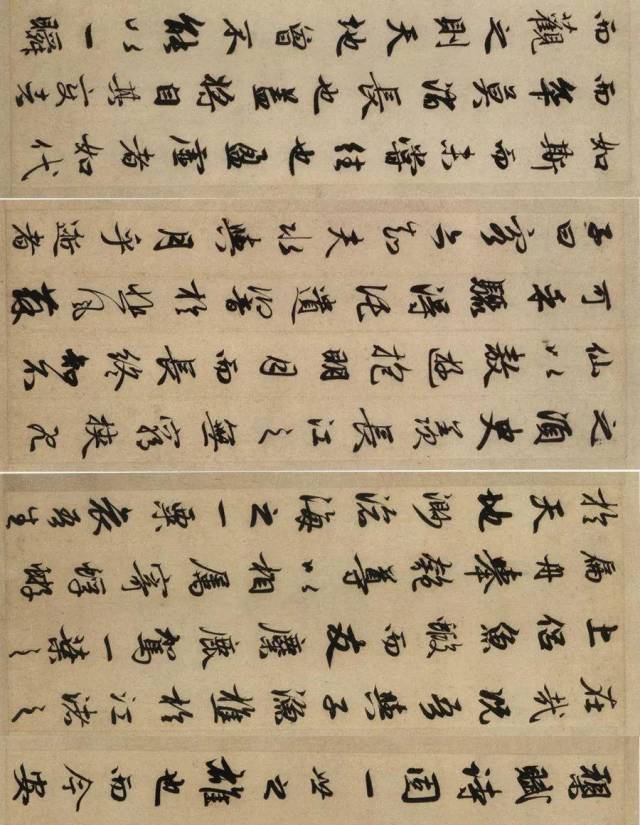 槊賦詩固一世之雄也而今安
在哉況吾與子漁樵於江渚之
上侶魚蝦而友麋鹿駕一葉之
扁舟舉匏尊以相屬寄蜉蝣
於天地渺滄海之一粟哀吾生
之須臾羨長江之無窮挾飛
仙以遨遊抱明月而長終知不
可乎驟得託遺響於悲風蘇
子曰客亦知夫水與月乎逝者
如斯而未嘗往也盈虛者如代
而卒莫消長也蓋將自其變者
而觀之則天地曾不能以一瞬